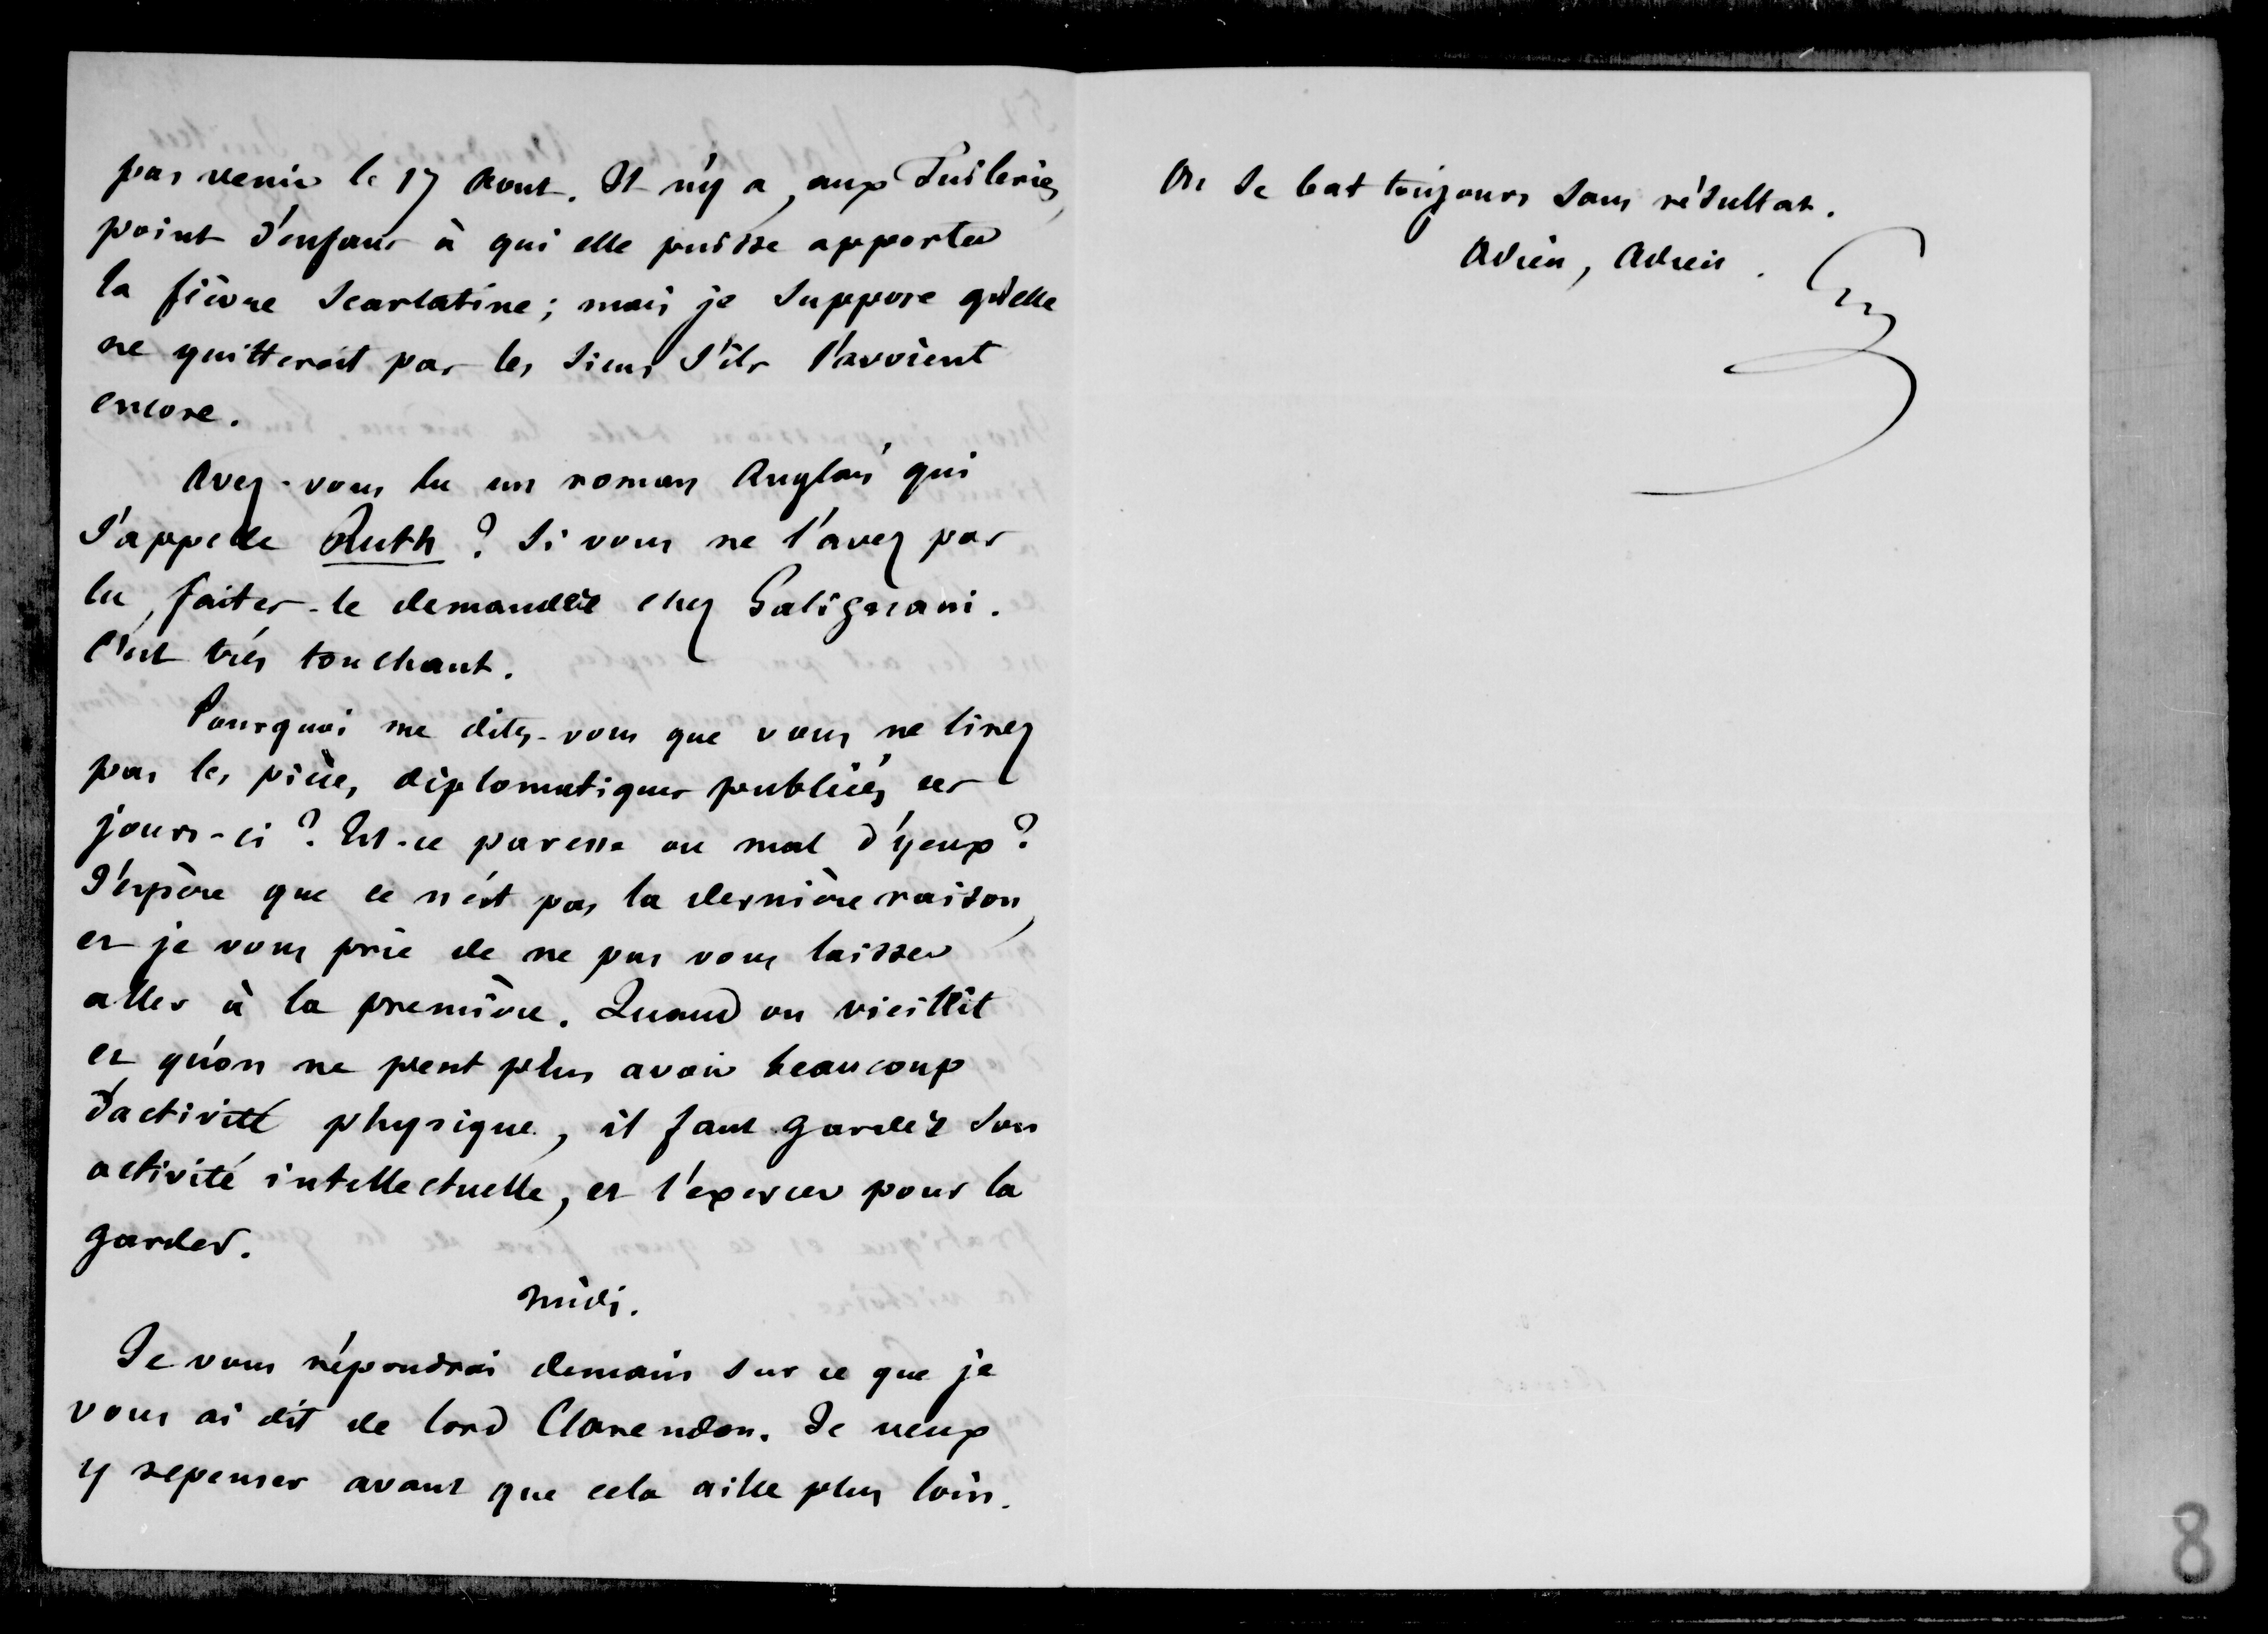 pas venir le 17 Aout. Il n'y a, aux Tuileries,
point d'enfant à qui elle puisse apporter
la fièvre scarlatine; mais je suppose qu'elle
ne quitteroit pas les siens s'ils l'avoient
encore.
Avez-vous lu un roman Anglais qui
s'appelle Ruth ? Si vous ne l'avez pas
lu, faites-le demander chez Galignani.
C'est très touchant.
Pourquoi me dites-vous que vous ne lirez
pas les pièces diplomatiques publiées ces
jours-ci ? Est-ce paresse ou mal d'yeux ?
J'espère que ce n'est pas la dernière raison,
et je vous prie de ne pas vous laisser
aller à la première. Quand on vieillit
et qu'on ne peut plus avoir beaucoup
d'activité physique, il faut garder son
activité intellectuelle, et l'exercer pour la
garder.
Midi.
Je vous répondrai demain sur ce que je
vous ai dit de lord Clarendon. Je veux
y repenser avant que cela aille plus loin.
On se bat toujours sans résultat.
Adieu, Adieu.
G
8